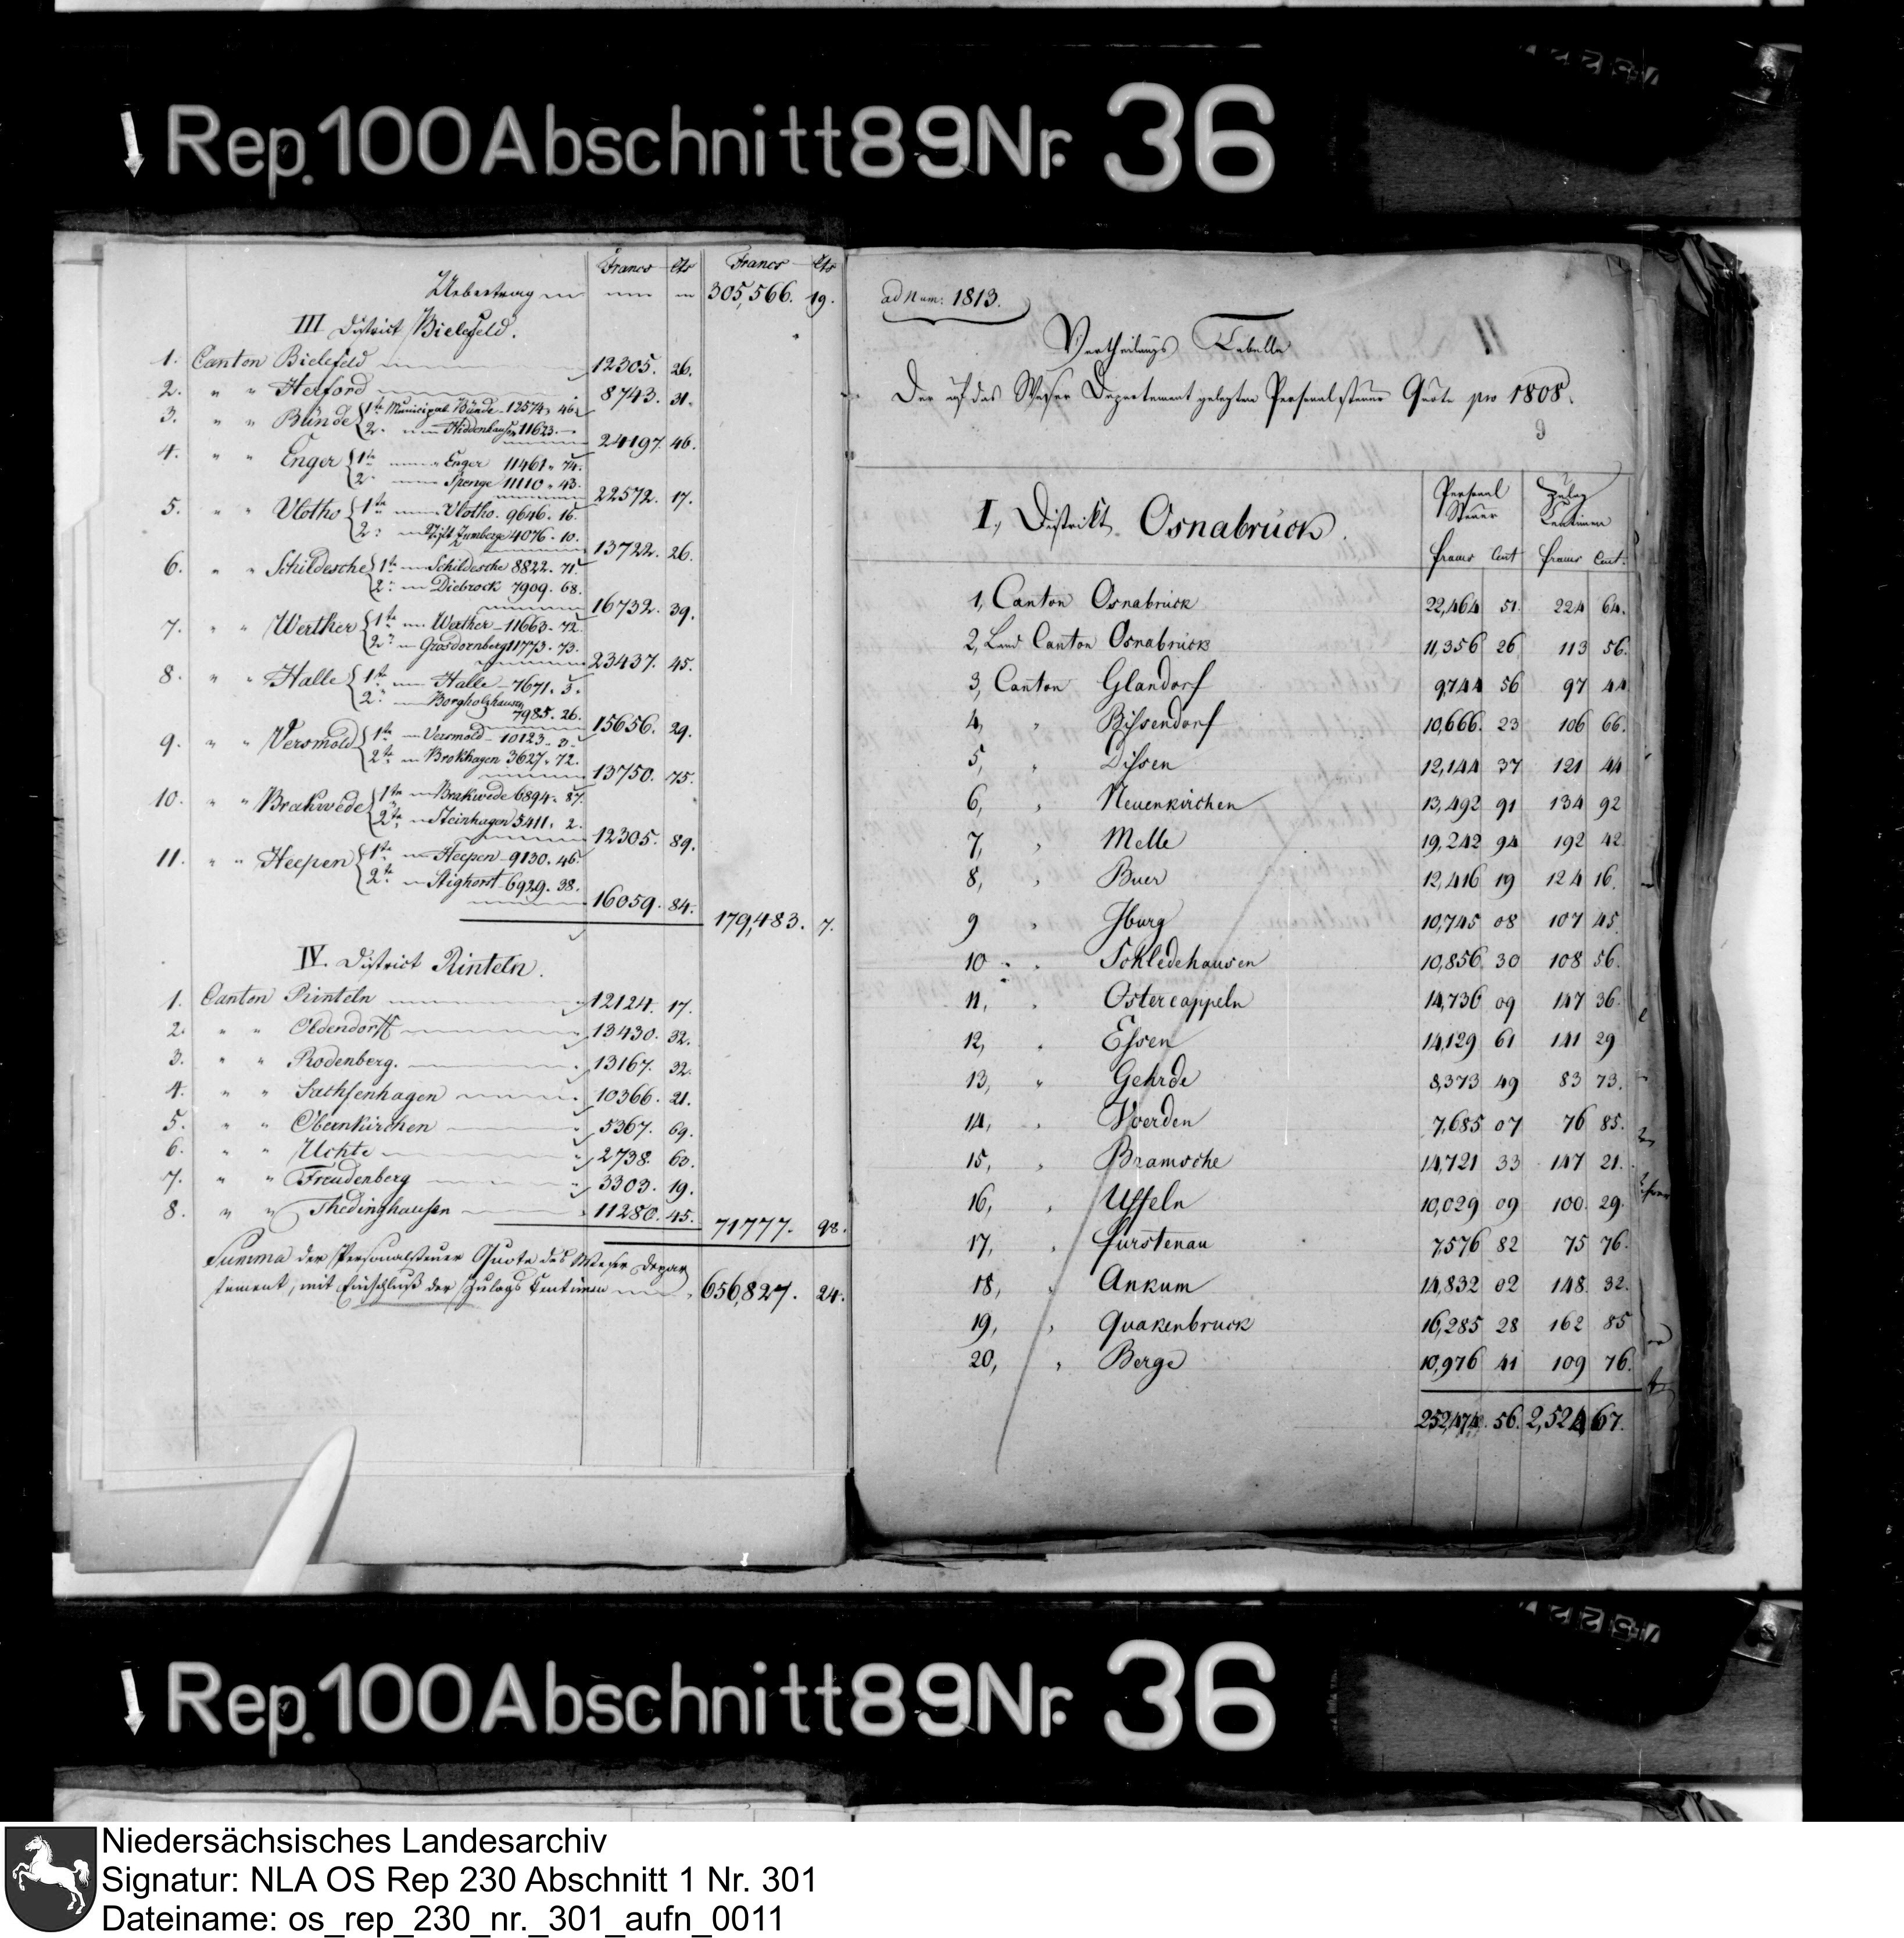 Rep. 100 Abschnitt 89 Nr. 36
Francs Cts Francs Cts
Uebertrag 305,566. 19.
III District Bielefeld.
1. Canton Bielefeld 12305. 26.
2. " " Herford 8743. 31.
3. " " Bünde 1te Municipal. Bünde 12574. 46.
2. Hiddenhausen 11623. —
24197. 46.
4. " " Enger 1te Enger 11461. 74.
2. Spenge 11110. 43.
22572. 17.
5. " " Vlotho 1te Vlotho. 9646. 16.
2. 4076. 10.
13722. 26.
6. " " Schildesche 1te Schildesche 8822. 71.
2. Diebrock 7909. 68.
16732. 39.
7. " " Werther 1te Werther 11663. 72.
2. Grosdornberg 11773. 73.
23437. 45.
8. " " Halle 1te Halle 7671. 3.
2. Borgholzhausen
7985. 26.
15656. 29.
9. " " Versmold 1te Versmold 10123. 3.
2te Brokhagen 3627. 72.
13750. 75.
10. " " Brakwede 1te Brakwede 6894. 87.
2te Steinhagen 5411. 2.
12305. 89.
11. " " Heepen 1te Heepen 9130. 46.
2te Stighorst 6929. 38.
16059. 84.
179,483. 7.
IV. District Rinteln.
1. Canton Rinteln 12124. 17.
2. " " Oldendorff 13430. 32.
3. " " Rodenberg. 13167. 32.
4. " " Sachsenhagen 10366. 21.
5. " " Obernkirchen 5367. 69.
6. " " Uchte 2738. 63.
7. " " Freudenberg 3303. 19.
8. " " Thedinghausen 11280. 45.
71777. 98.
Summa der Personalsteuer Quote des Weser Depar
tement, mit Einschluß der Zulags Centimen 656,827. 24.
ad Num: 1813.
Vertheilungs Tabelle
Der auf das Weser Departement gelegten Personalsteuer Quote pro 1808.
9
Personal Steuer Zulag Centimen
I, Distrikt Osnabrück.
francs Cent francs Cent.
1, Canton Osnabrück 22,464 51. 224 64.
2, Land Canton Osnabrück 11,356 26 113 56.
3, Canton Glandorf 9,744 56 97 44
4, " Bissendorf 10,666. 23 106 66.
5, " Dissen 12,144 37 121 44
6, " Neuenkirchen 13,492 91 134 92
7, " Melle 19,242 94 192 42
8, " Buer 12,416 19 124 16.
9 " Iburg 10,745 08 107 45.
10 " Schledehausen 10,856 30 108 56.
11, " Ostercappeln 14,736 09 147 36.
12, " Essen 14,129 61 141 29
13, " Gehrde 8,373 49 83 73.
14, " Voerden 7,685 07 76 85.
15, " Bramsche 14,721 33 147 21.
16, " Uffeln 10,029 09 100. 29.
17, " Furstenau 7,576 82 75 76.
18, " Ankum 14,832 02 148. 32.
19, " Quakenbruck 16,285 28 162 85
20, " Berge 10,976 41 109 76.
252,474. 56. 2,524 67.
Rep. 100 Abschnitt 89 Nr. 36
Niedersächsisches Landesarchiv
Signatur: NLA OS Rep 230 Abschnitt 1 Nr. 301
Dateiname: os_rep_230_nr._301_aufn_0011